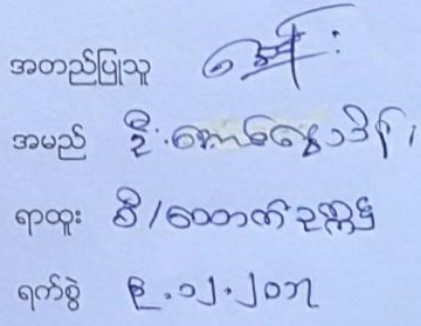 အတည်ပြုသူ
အမည် ဦး
ရာထူး စီ/ထောက်ဥက္ကဋ္ဌ
ရက်စွဲ ၉.၁၂.၂၀၁၇